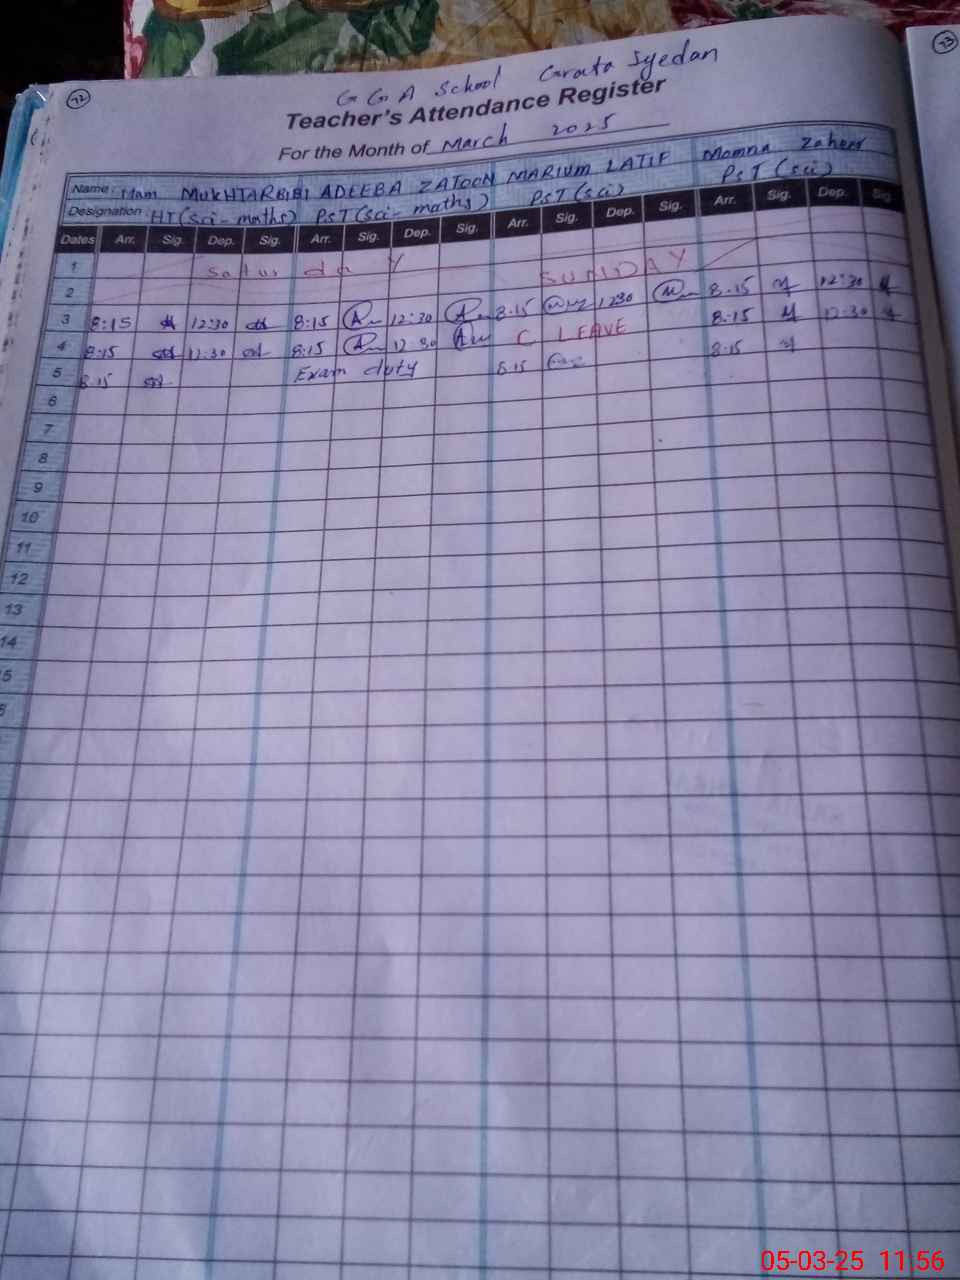 72
73
G G A School Grata Syedan
Teacher's Attendance Register
For the Month of March 2025
Name: Mam MUKHTARBIBI ADEEBA ZATOON MARIUM LATIF Momna Zaheer
Designation HT (sci-maths) PST (sci-maths) PST (sci) PST (sci)
Dates Arr. Sig. Dep. Sig. Arr. Sig. Dep. Sig. Arr. Sig. Dep. Sig. Arr. Sig. Dep. Sig.
1 Saturday
2 SUNDAY
3 8:15 12:30 8:15 12:30 8:15 1230 8:15 12:30
4 8:15 12:30 8:15 12:30 C LEAVE 8:15 12:30
5 8:15 Exam duty 8:15 8:15
6
7
8
9
10
11
12
13
14
5
05-03-25 11:56